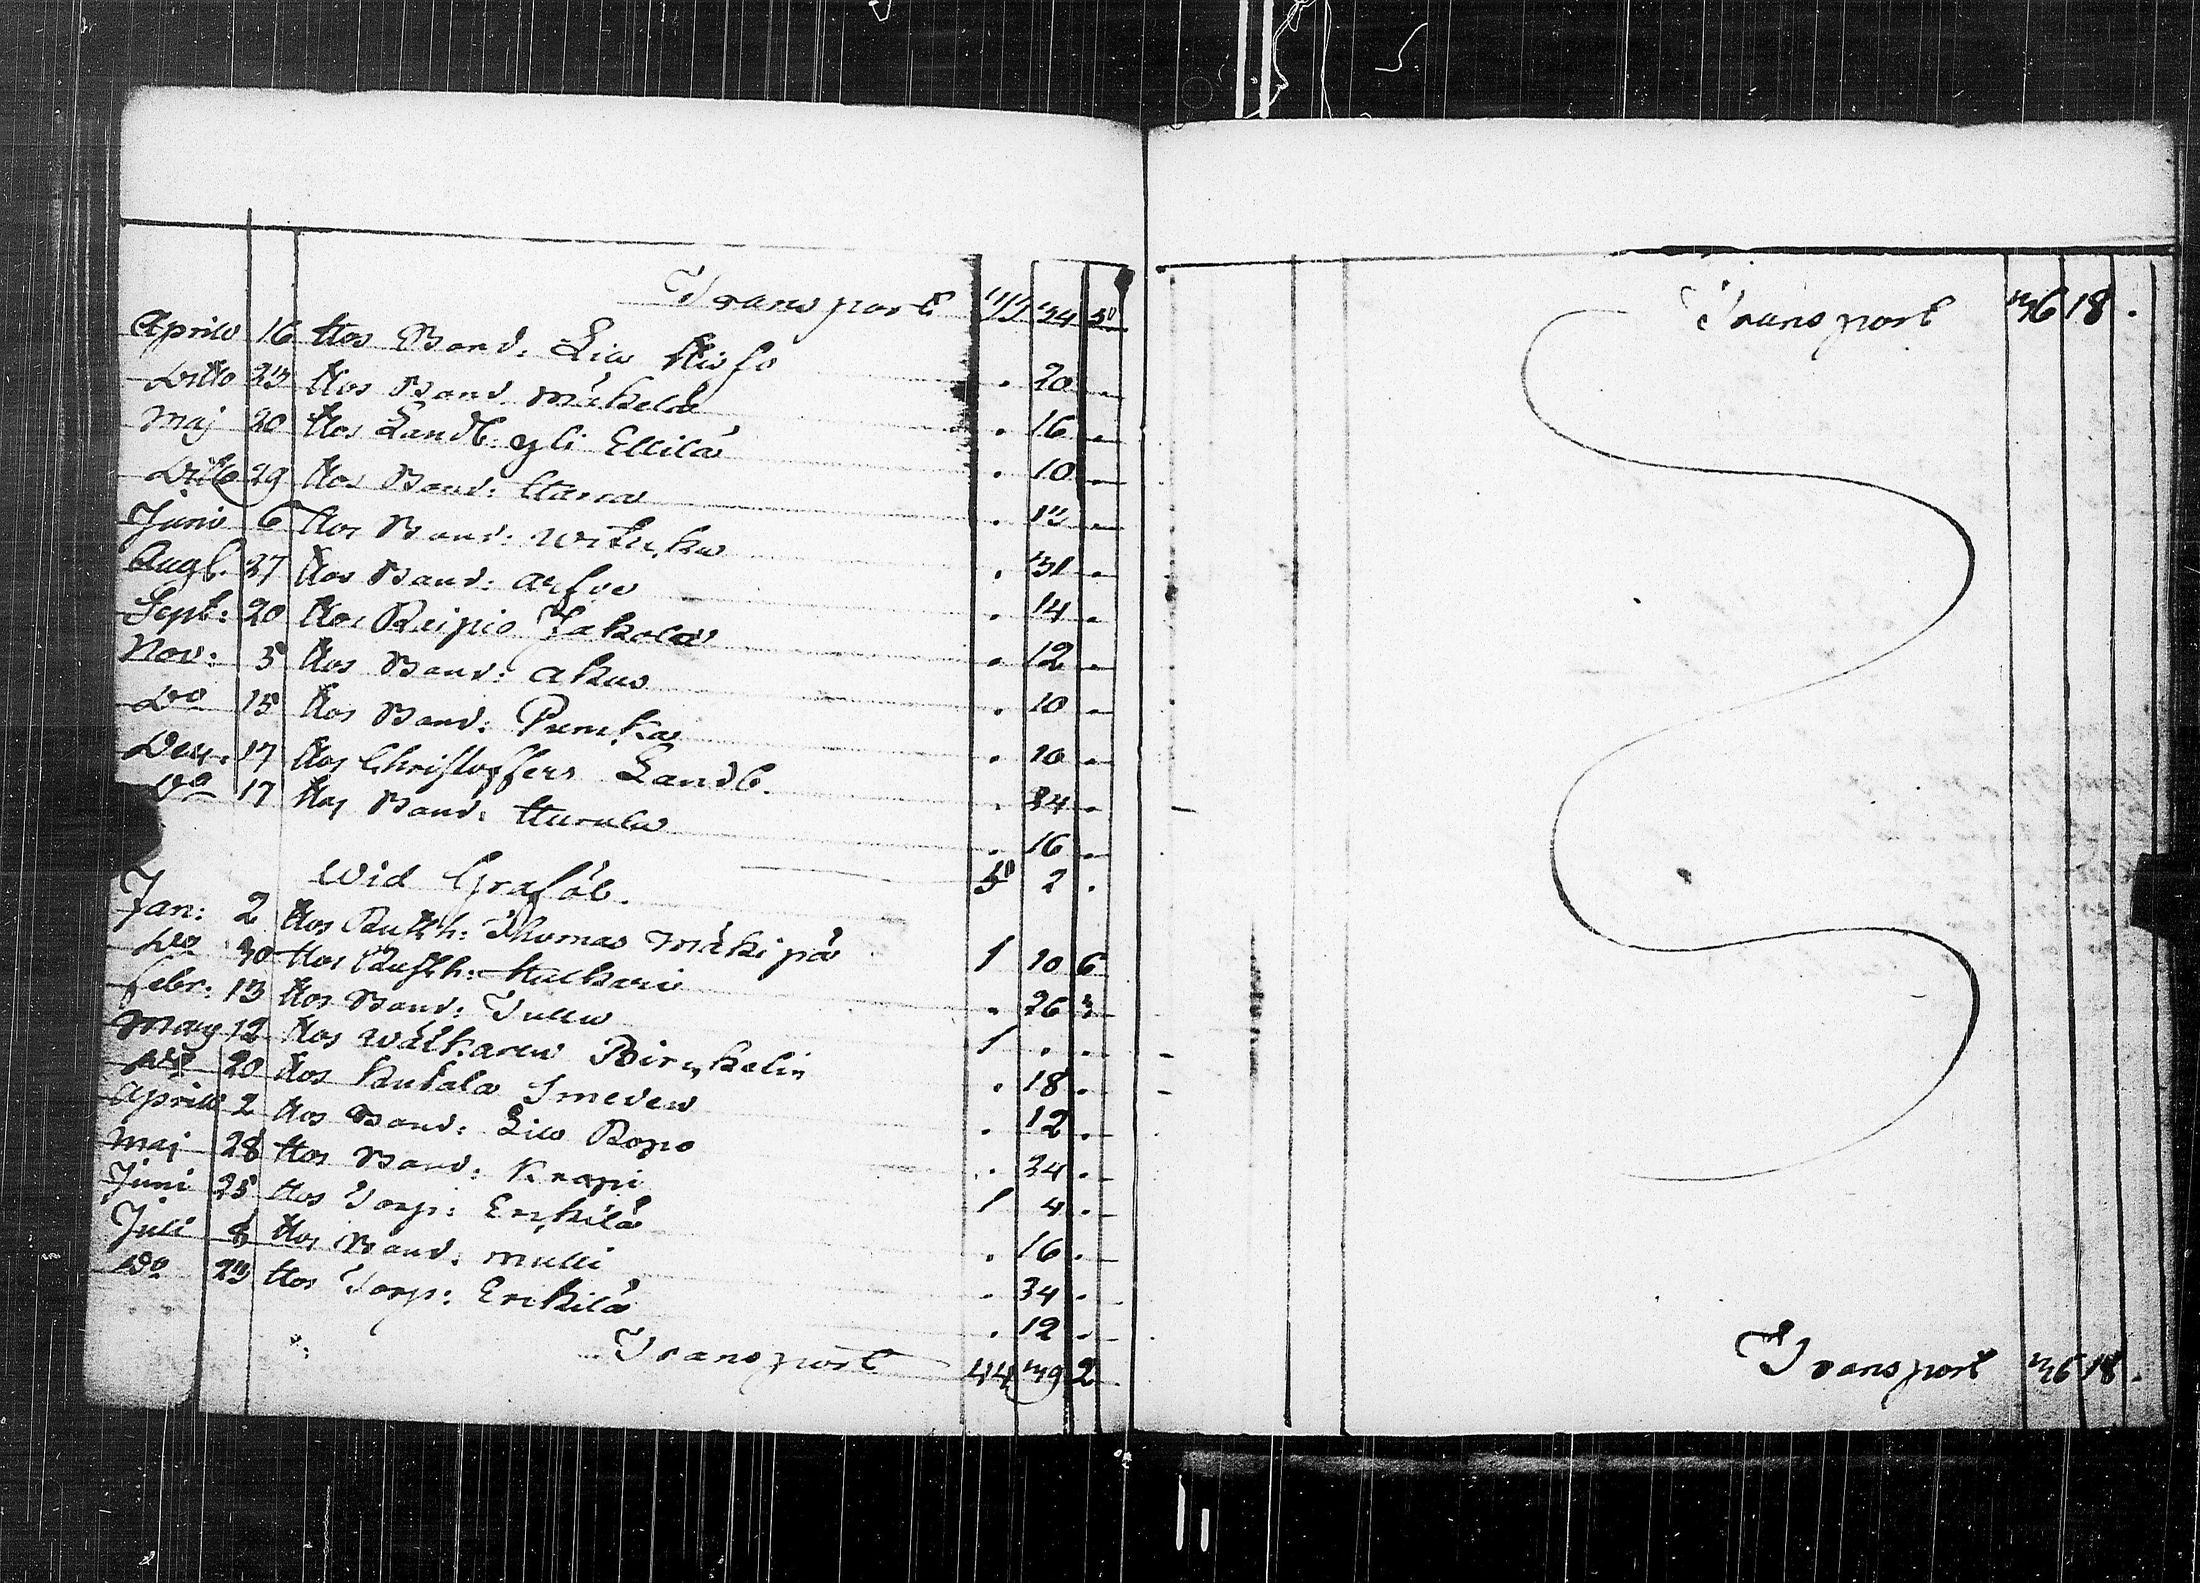 Transport 33 34 5
Aprill 16 Hos Bond. Lill Kisso . 20 .
Ditto 23 Hos Bond. Mäkelä . 16 .
Maj 20 Hos Landb. yli Ellilä . 10 .
Ditto 29 Hos Bond: Harra . 13 .
Junii 6 Hos Bond: . 31 .
Augl. 27 Hos Bond: . 14 .
Sept: 20 Hos Reipio Jakola . 12 .
Nov: 5 Hos Bond: Akus . 10 .
Do 15 Hos Bond: . 10 .
Dec: 17 Hos Christoffers Landb. . 34 .
Do 17 Hos Bond: Hurula . 16 .
Wid Grafòl. 5 2 .
Jan: 2 Hos Rusth: Thomas Mäkipä 1 10 6
Do 30 Hos Rusth: Halkari . 26 3
Febr: 13 Hos Bond: Tulla 1 . .
Mars 12 Hos Wälkaren . 18 .
Do 20 Hos Kutala Smeden . 12 .
Aprill 2 Hos Bond: Lill Ropo . 34 .
Maj 28 Hos Bond: Krapi 1 4 .
Juni 25 Hos Torp: Erkilä . 16 .
Juli 8 Hos Bond: Mulli . 34 .
Do 23 Hos Torp: Erkilä . 12 .
Transport 44 39 2
Transport 36 18 .
Transport 36 18 .